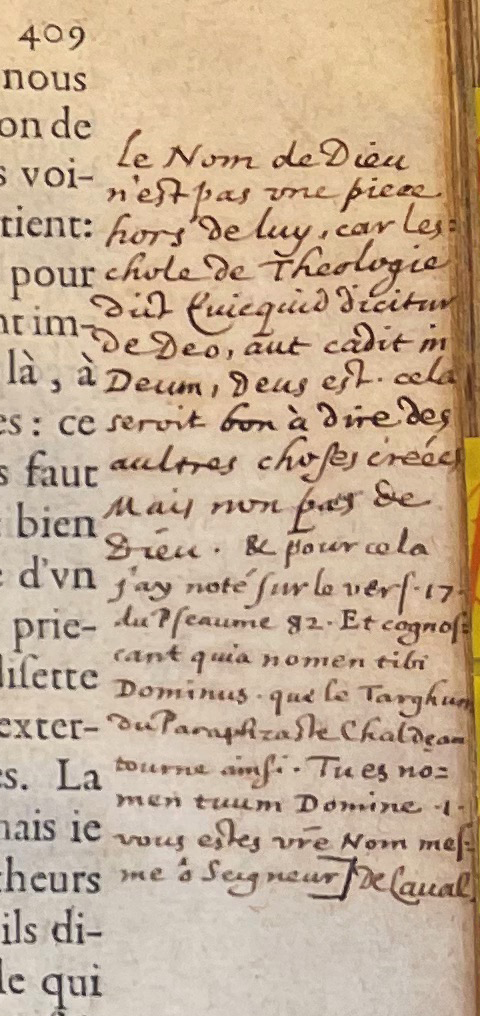 409
nous
on de
s voi-
tient:
pour
nt im-
là, à
es: ce
s faut
bien
e d'vn
prie-
disette
exter-
es. La
mais ie
theurs
ils di-
le qui
le Nom de Dieu
n'est pas vne piece
hors de luy, car les=
chole de Theologie
dict Quicquid dicitur
de Deo, aut cadit in
Deum, Deus est. cela
seroit bon à dire des
aultres choses creées
Mais non pas de
Dieu. & pour cela
j'ay noté sur le vers. 17.
du Pseaume 82. Et cognos=
cant quia nomen tibi
Dominus. que le Targhum
du Paraphraste Chaldean
tourne ainsi. Tu es no=
men tuum Domine .i.
vous estes vr̃e Nom mes=
me ô Seigneur] De Laual